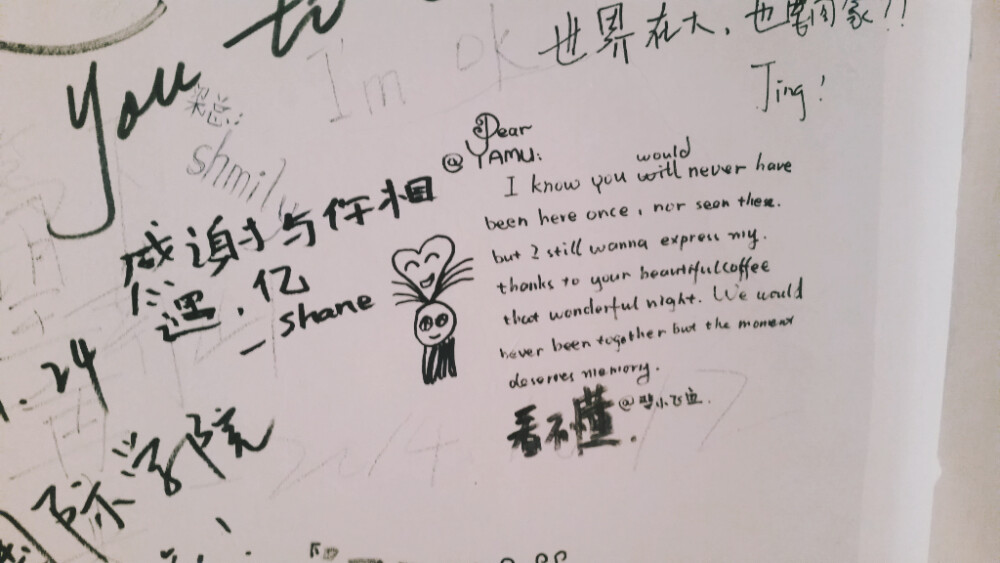 You to
I'm ok
世界在大，也要回家!!
Jing!
shmily
Dear
@YAMU:
would
I know you will never have
been here once, nor seen these.
but I still wanna express my.
thanks to your beautifulcoffee
that wonderful night. We would
never been together but the moment
deserves memory.
看不懂.
感谢与你相
遇.亿
_shane
.24
际学院
2014
17